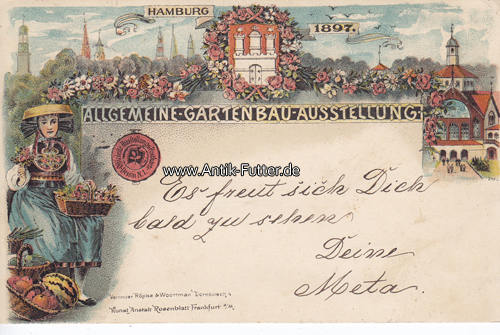 HAMBURG
1897.
ALLGEMEINE-GARTENBAU-AUSSTELLUNG.
www.Antik-Futter.de
Es freut sich Dich
bald zu sehen
Deine
Meta.
Kunst Anstalt Rosenblatt Frankfurt a/M.